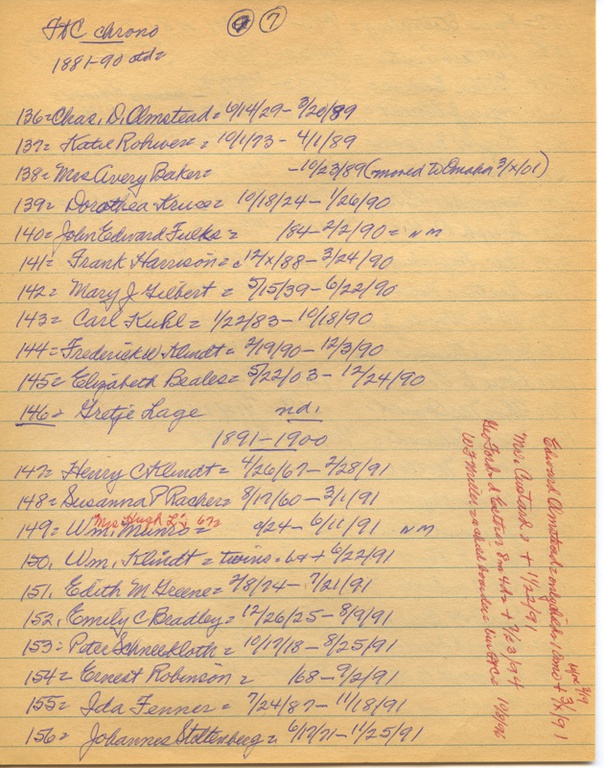 FHC chrono
9 7
1881-90 std=
136= Chas. D. Olmstead= 6/14/29- 3/20/89
137= Katie Rohwer= 10/1/73 - 4/1/89
138= Mrs Avery Baker= -10/23/89 (moved to Omaha 3/x/01)
139= Dorothea Kruse= 10/18/24- 1/26/90
140= John Edward Fulks= /84-2/2/90= NM
141= Frank Harrison= c12/x/88-3/24/90
142= Mary J. Gilbert= 5/15/39-6/22/90
143= Carl Kuhl= 1/22/83-10/18/90
144= Frederick W. Klindt= 2/19/90-12/3/90
145= Elizabeth Beales= 5/22/03-12/24/90
146= Gretje Lage nd.
1891-1900
147= Henry C Klindt= 4/26/67-2/28/91
148= Susanna P Racher= 8/17/60-3/1/91
Mrs Hugh L's 67=
149= Wm. Munro= c/24-6/11/91 NM
150. Wm. Klindt= twins. b + 6/22/91
151. Edith M Greene= 2/8/74- 7/21/91
152. Emily C Bradley= 12/26/25-8/9/91
153= Peter Schneekloth= 10/17/18-8/25/91
154= Ernest Robinson= /68-9/2/91
155= Ida Fenner= 7/24/87-11/18/91
156= Johannes Stoltenberg= 6/17/71-11/25/91
Edward Olmstead= only child, 10mo + 3/x/91
Mrs. + 11/22/91
8m 4da + 7/23/94
W F Miller= 10/8/96